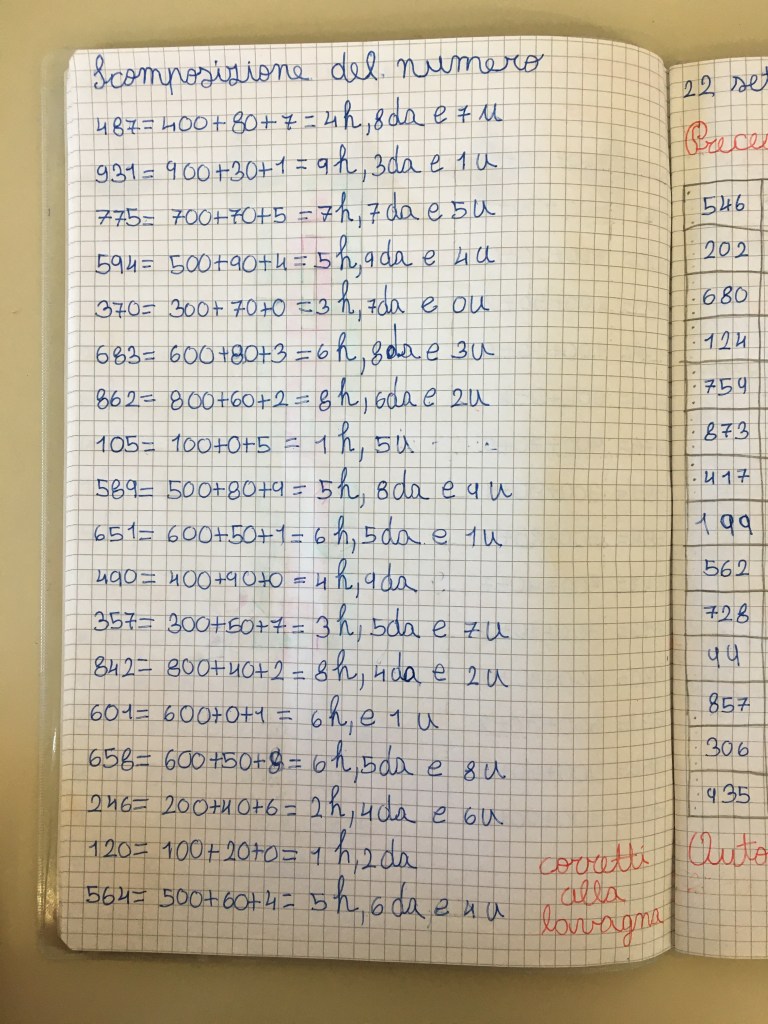 Scomposizione del numero
487=400+80+7=4h,8da e 7u
931=900+30+1=9h,3da e 1u
775=700+70+5=7h,7da e 5u
594=500+90+4=5h,9da e 4u
370=300+70+0=3h,7da e 0u
683=600+80+3=6h,8da e 3u
862=800+60+2=8h,6da e 2u
105=100+0+5=1h,5u
589=500+80+9=5h,8da e 9u
651=600+50+1=6h,5da e 1u
490=400+90+0=4h,9da
357=300+50+7=3h,5da e 7u
842=800+40+2=8h,4da e 2u
601=600+0+1=6h,e 1u
658=600+50+8=6h,5da e 8u
246=200+40+6=2h,4da e 6u
120=100+20+0=1h,2da
564=500+60+4=5h,6da e 4u
corretti
alla
lavagna
22 set
Prece
546
202
680
124
759
873
417
199
562
728
44
857
306
935
Auto